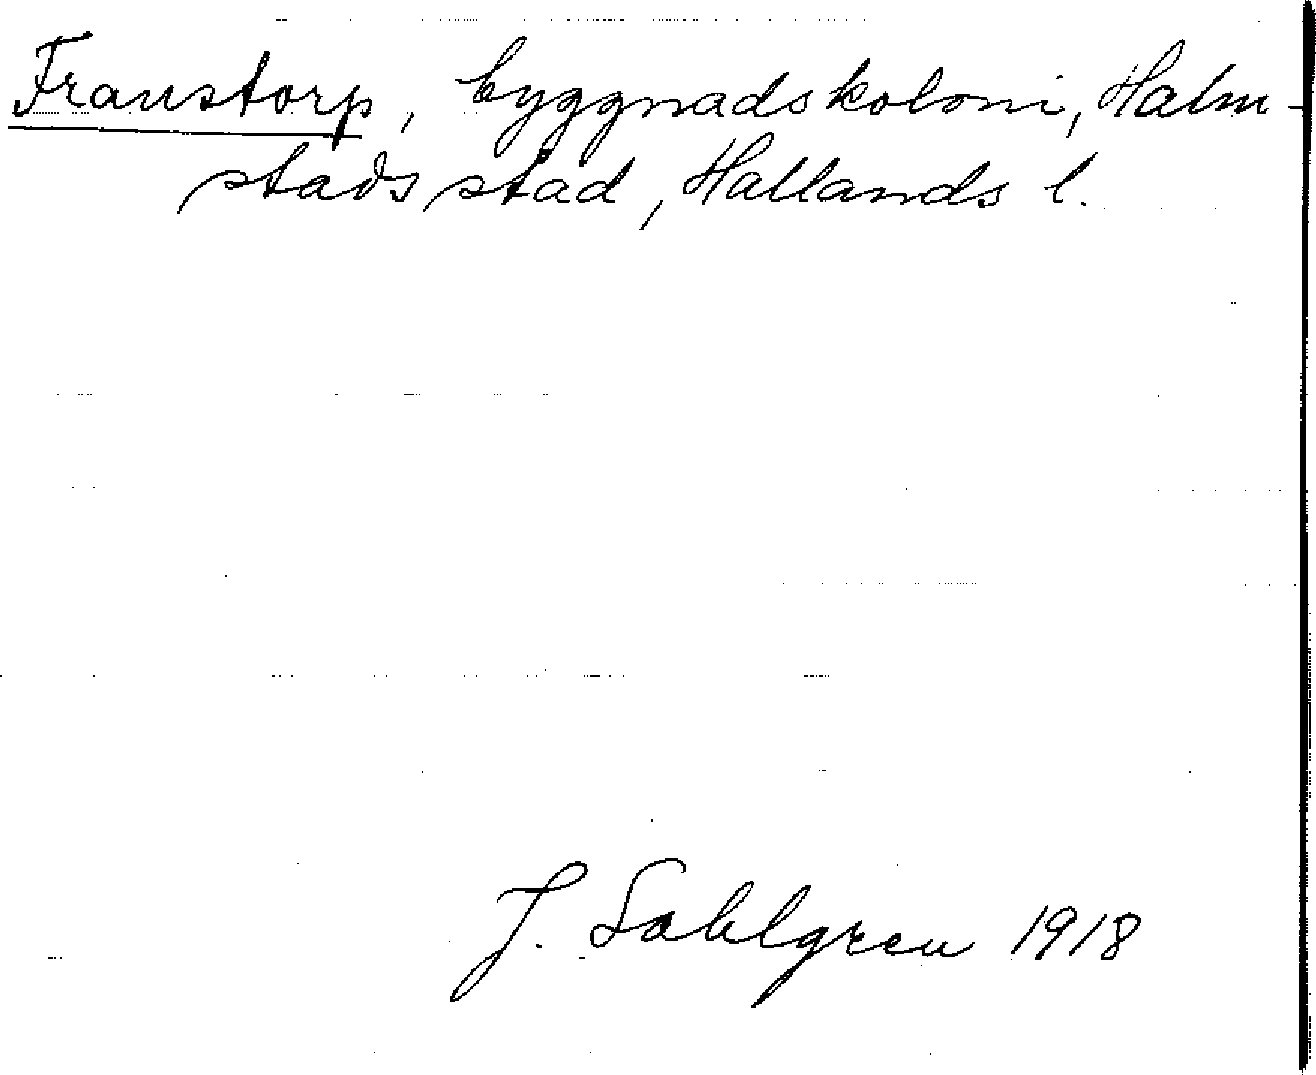 Franstorp, byggnadskoloni, Halm-
stads stad, Hallands l.
J. Sahlgren 1918